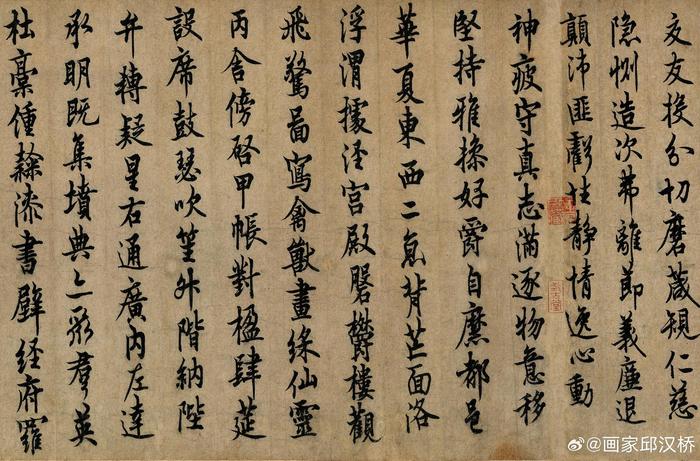 交友投分切磨箴規仁慈
隐惻造次弗離節義廉退
顛沛匪虧性静情逸心動
神疲守真志滿逐物意移
堅持雅操好爵自縻都邑
華夏東西二京背芒面洛
浮渭據涇宮殿磐欝樓觀
飛驚啚寫禽獸畫綵仙靈
丙舍傍啓甲帳對楹肆筵
設席鼓瑟吹笙升階納陛
弁轉疑星右通廣內左達
承明既集墳典亦聚羣英
杜稾鍾隸漆書壁經府羅
@画家邱汉桥